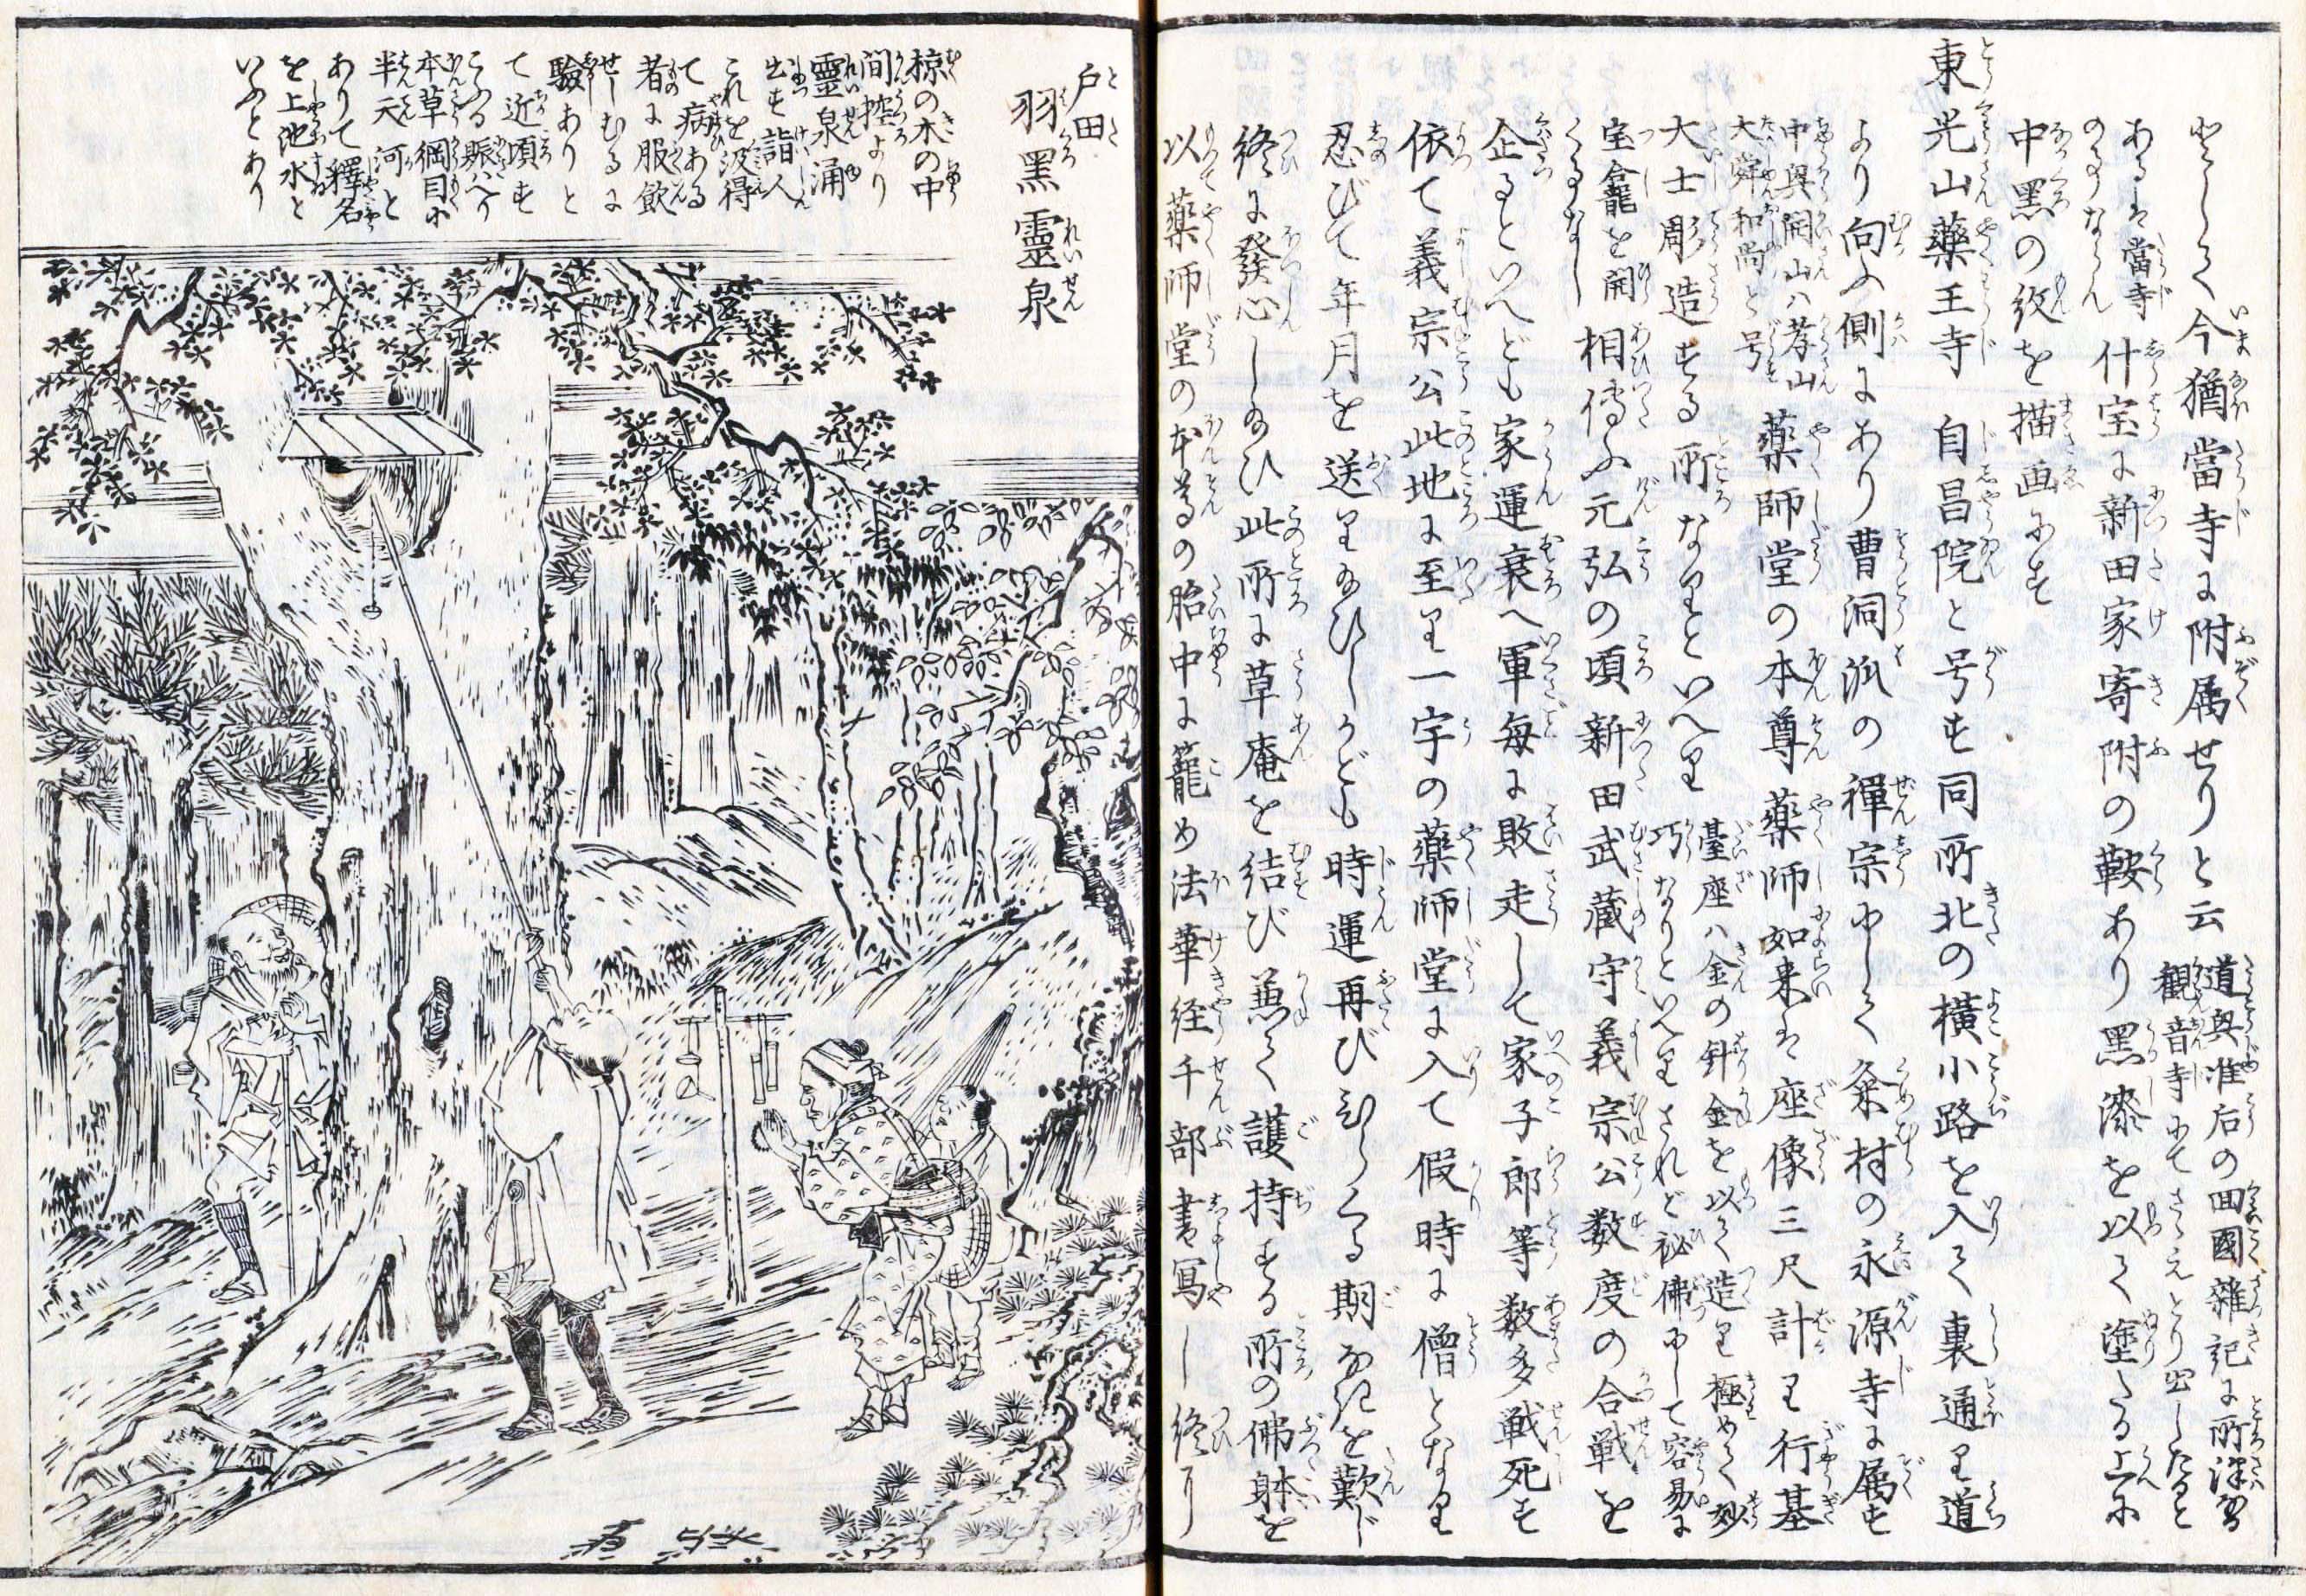 として今猶當寺に附属せりと云
道興准后の回國雑記に所澤
観音寺にてさゝえとり出したると
あるは當寺
のことならん
什宝に新田家寄附の鞍あり黒漆を以て塗たる上に
中黒の紋を描画にす
東光山薬王寺 自昌院と号す同所北の横小路を入て裏通り道
より向ふ側にあり曹洞派の禅宗にして粂村の永源寺に属す
中興開山ハ孝山
大舜和尚と号
薬師堂の本尊薬師如来は座像三尺計り行基
大士彫造する所なりといへり
臺座ハ金の針金を以て造り極めて妙
巧なりといへりされど秘佛にして容易に
宝龕を開
くことなし
相傳ふ元弘の頃新田武蔵守義宗公数度の合戦を
企るといへども家運衰へ軍毎に敗走して家子郎等数多戦死す
依て義宗公此地に至り一宇の薬師堂に入て假時に僧となり
忍びて年月を送り給ひしかども時運再びひらくる期なきを歎じ
終に發心し給ひ此所に草庵を結び兼て護持する所の佛躰を
以薬師堂の本尊の胎中に籠め法華経千部書写し終り
戸田
羽黒靈泉
椋の木の中
間控より
靈泉涌
出す詣人
これを汲得
て病ある
者に服飲
せしむるに
驗ありと
て近頃す
こふる賑ハへり
本草綱目に
半天河と
ありて釋名
を上池水と
いふとあり